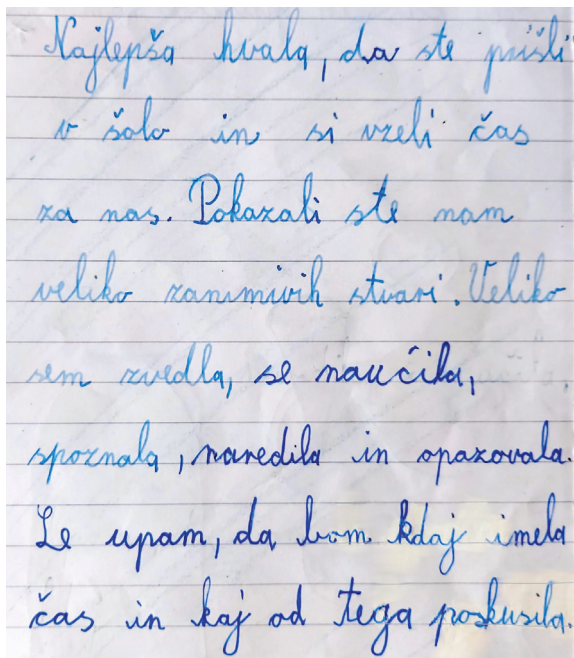 Najlepša hvala, da ste prišli
v šolo in si vzeli čas
za nas. Pokazali ste nam
veliko zanimivih stvari. Veliko
sem zvedla, se naučila,
spoznala, naredila in opazovala.
Le upam, da bom kdaj imela
čas in kaj od tega poskusila.